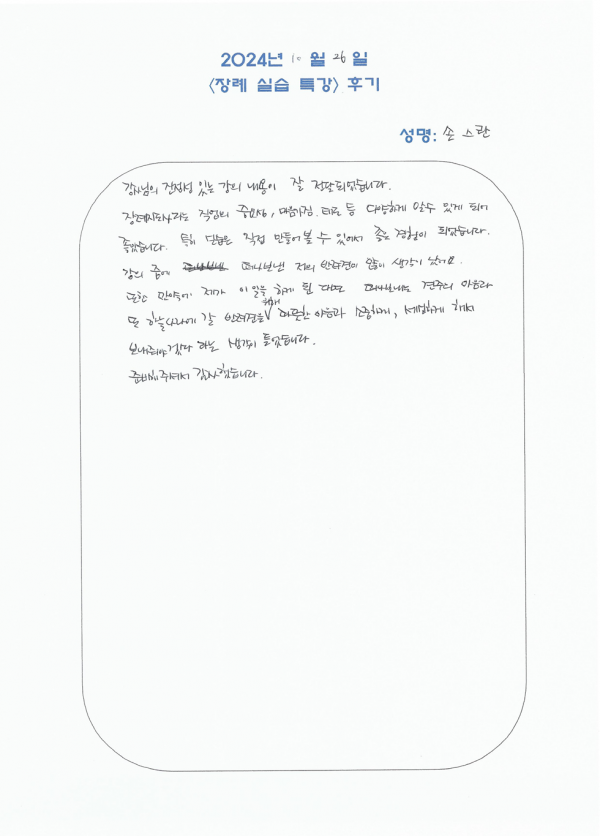 2024년 10 월 26 일
<장례 실습 특강> 후기
성명: 손 스란
강사님의 진정성 있는 강의 내용이 잘 전달되었습니다.
장례지도사라는 직업의 중요성, 마음가짐, 태도 등 다양하게 알수 있게 되어
좋았습니다. 특히 실습은 직접 만들어 볼 수 있어서 좋은 경험이 되었습니다.
강의 중에 떠나보낸 저의 반려견이 많이 생각이 났어요.
또한 만약에 제가 이 일을 하게 된다면 떠나보내는 견주의 마음과
또 하늘나라에 갈 반려견을 위해 따뜻한 마음과 소중하게, 세심하게 해서
보내줘야 겠다 하는 생각이 들었습니다.
준비해주셔서 감사했습니다.